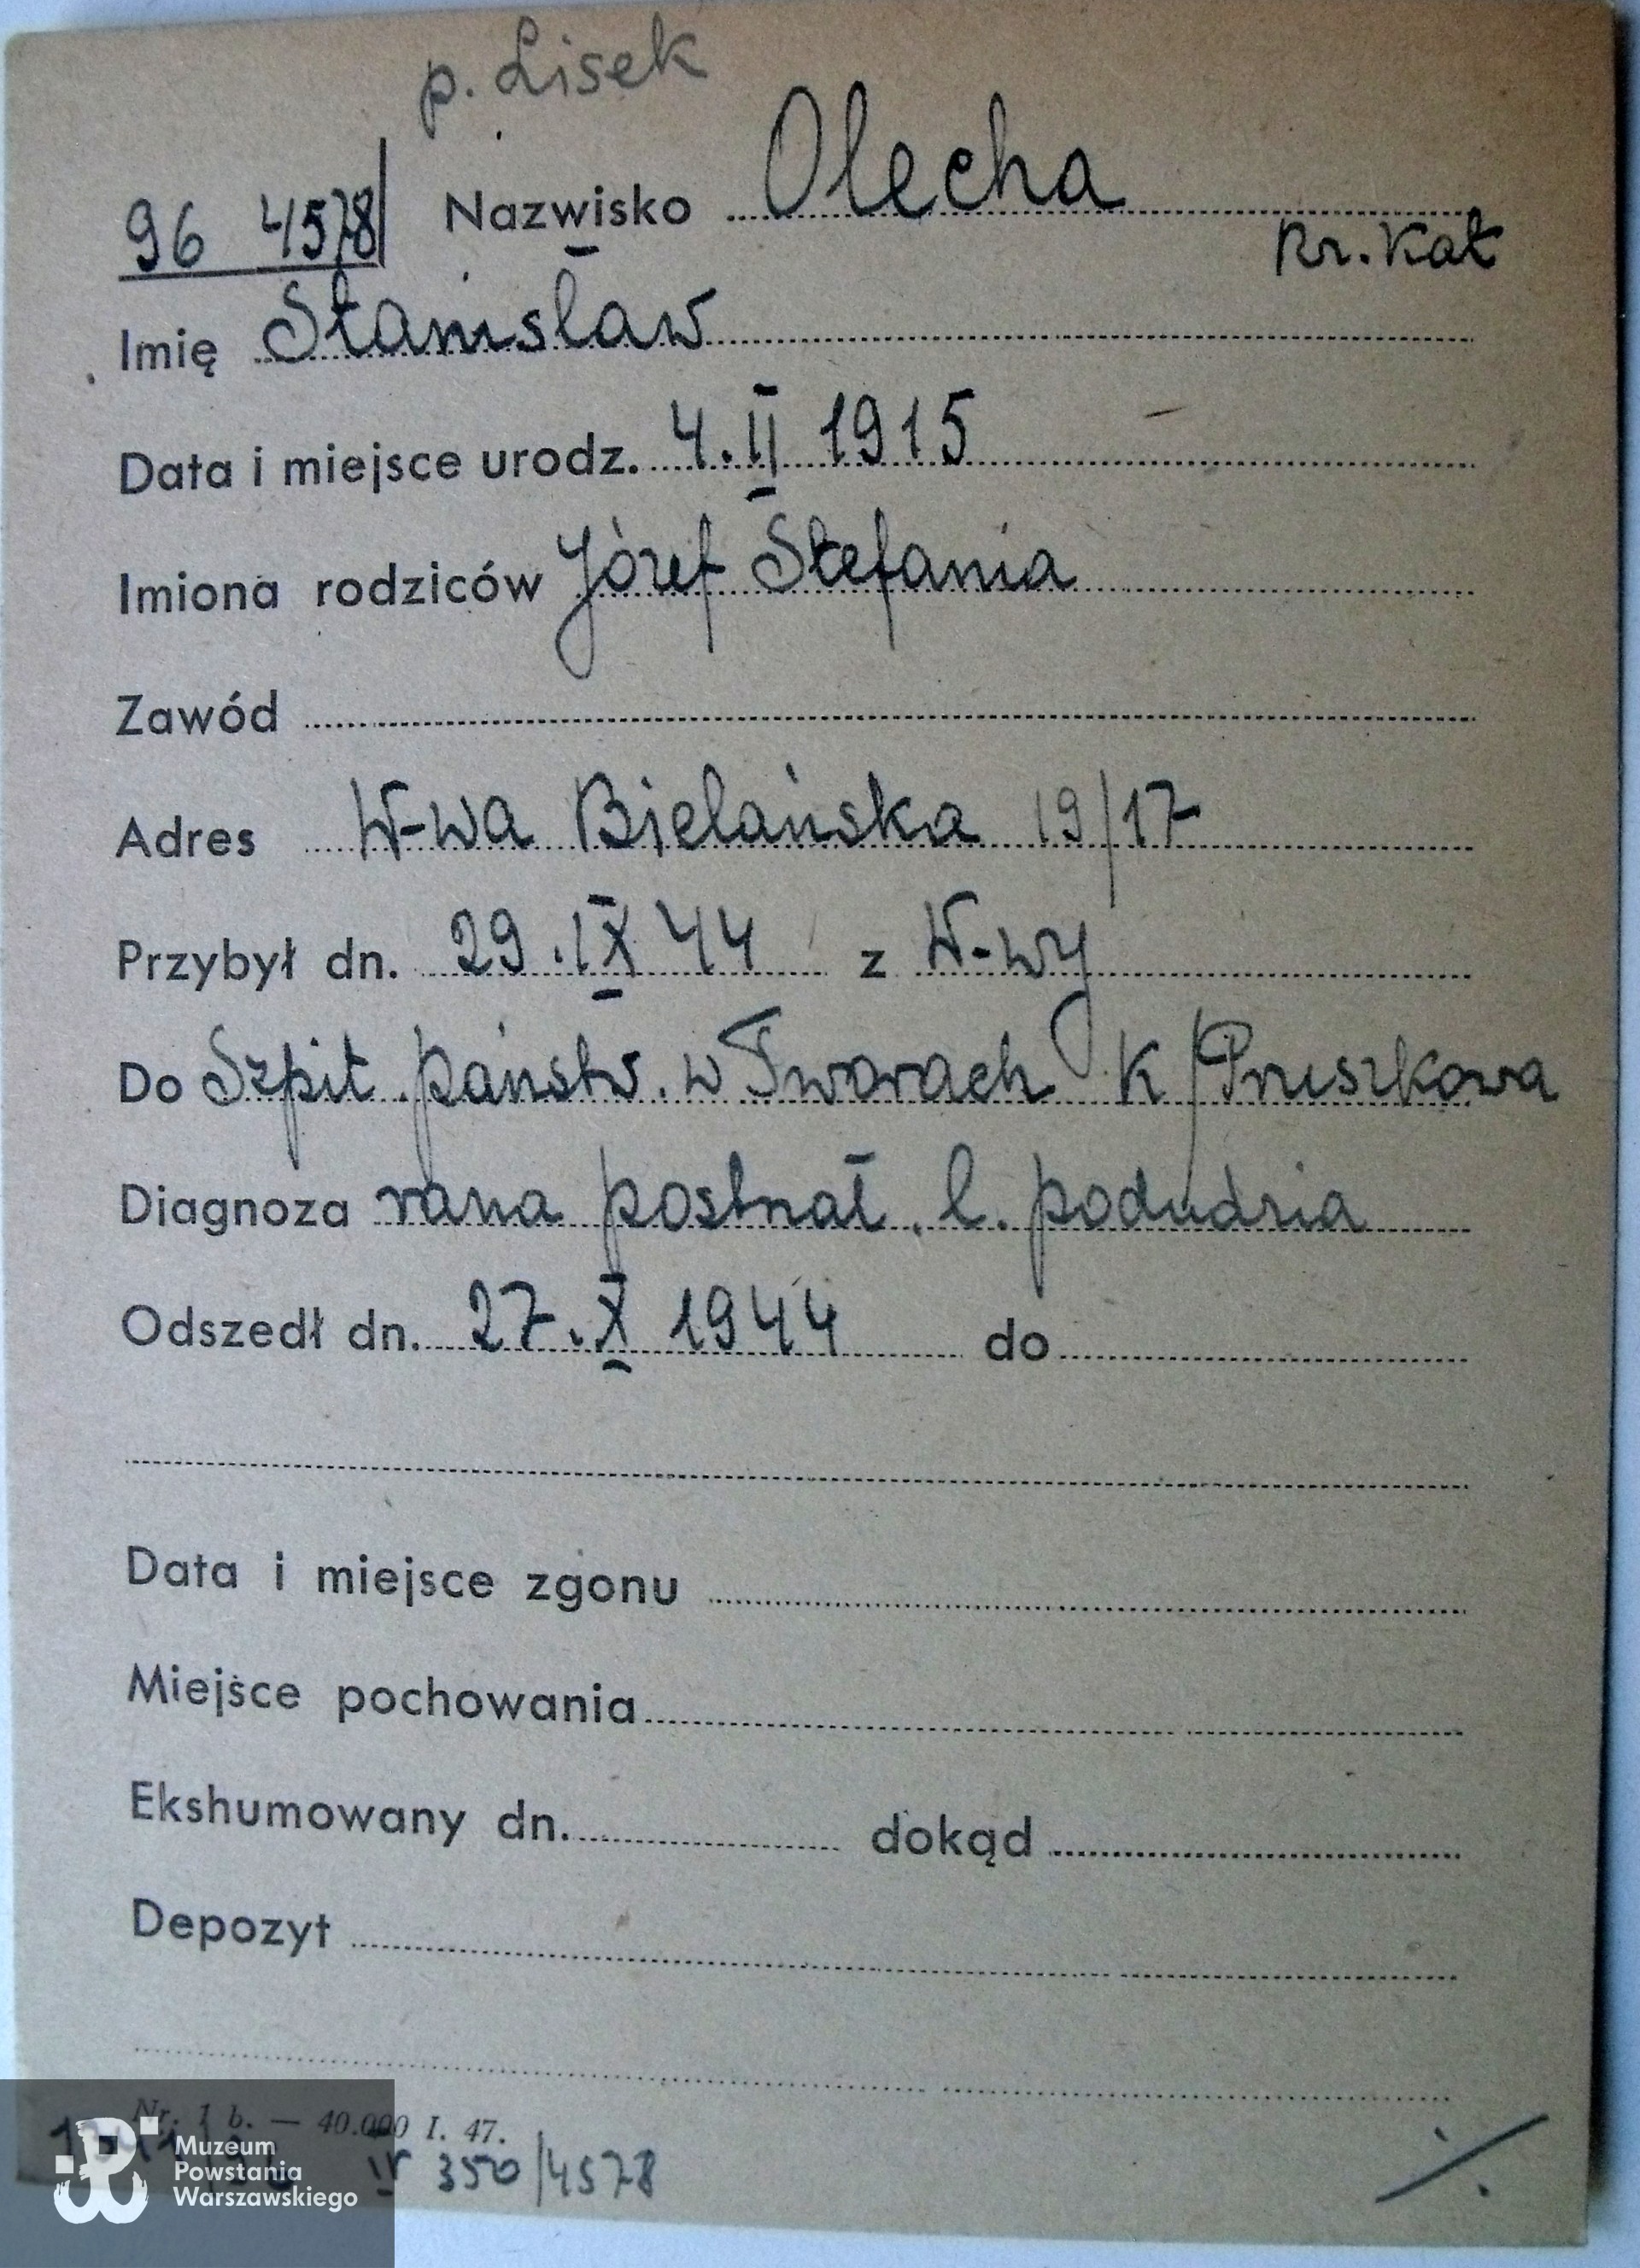 p. Lisek
96 4578 Nazwisko Olecha
Rz. Kat
Imię Stanisław
Data i miejsce urodz. 4.II 1915
Imiona rodziców Józef Stefania
Zawód
Adres W-wa Bielańska 19/17
Przybył dn. 29.IX 44 z W-wy
Do Szpit. państw. w Tworach K/Pruszkowa
Diagnoza rana postrzał. l. podudzia
Odszedł dn. 27.X 1944 do
Data i miejsce zgonu
Miejsce pochowania
Ekshumowany dn. dokąd
Depozyt
Nr. 1 b. — 40.000 I. 47.
350/4578
Muzeum
Powstania
Warszawskiego